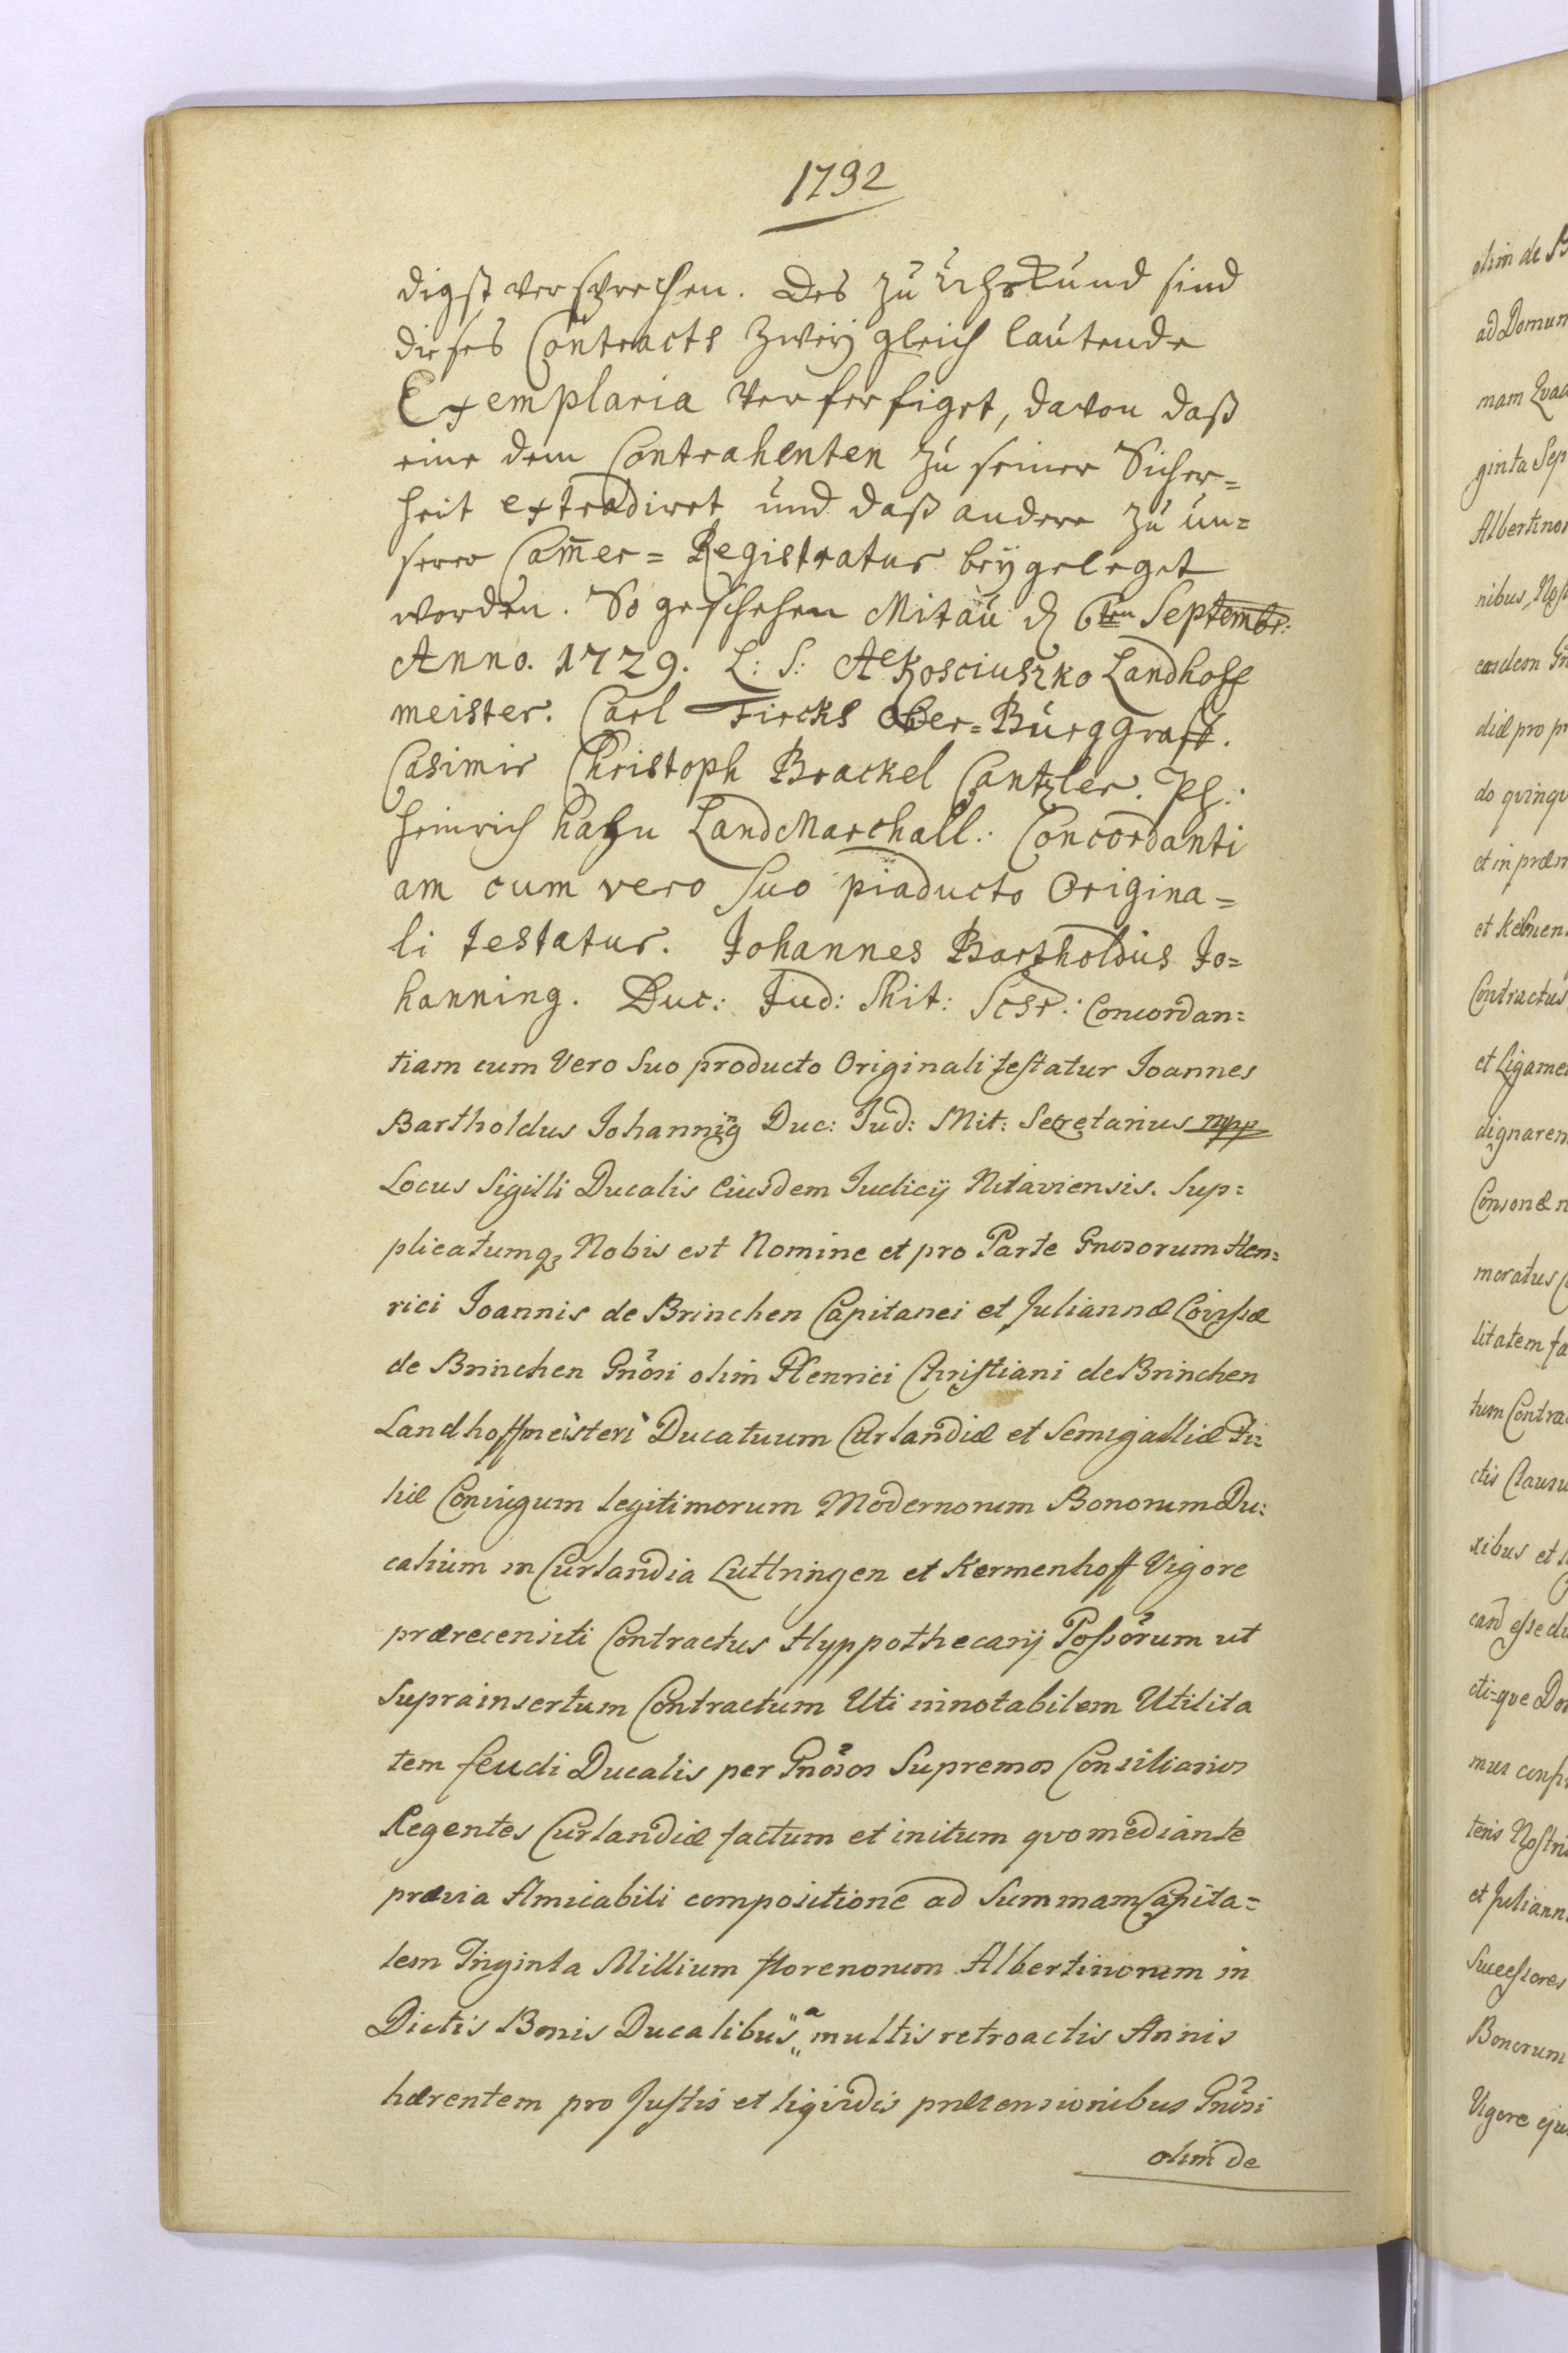 1792
digst versprechen. Des zu Uhrkund sind
dieses Contracts zweÿ gleich lautende
Exemplaria verferfiget, davon daß
eine dem Contrahenten zu seiner Sicher=
heit extradiret und daß andere zu un=
serer Cam̄er= Registratur beÿgeleget
worden. So geschehen Mitau d 6ten Septembr:
Anno. 1729. L: S: Kosciuszko Landhoff
meister. Carl Fircks Ober=Burggraff.
Casimir Christoph Brackel Cantzler.
Heinrich Hahn LandMarchall.: Concordanti
am cum vero Suo piaducto Origina=
li testatur. Johannes Bartholdus Jo=
hanning. Duc: Jud: Mit: Scsr: Concordan=
tiam cum Vero Suo producto Originali testatur Joannes
Bartholdus Johanning Duc: Jud: Mit: Secretarius mpp
Locus Sigilli Ducalis Eiusdem Judicij Mitaviensis. Sup=
plicatumq; Nobis est Nomine et pro Parte Gnosorum Hen=
rici Joannis de Brinchen Capitanei et Juliannæ Loviſsæ
de Brinchen Gnosi olim Henrici Christiani de Brinchen
Landhoffmeisteri Ducatuum Curlandiæ et Semigalliæ Fi=
liæ Coniugum legitimorum Modernorum Bonorum Du=
calium in Curlandia Luttringen et Kermenhoff Vigore
prærecensiti Contractus Hyppothecarij Poſsorum ut
Suprainsertum Contractum Uti innotabilem Utilita
tem feudi Ducalis per Gnosos Supremos Consiliarios
Regentes Curlandiæ factum et initum qvo mediante
prævia Amicabili compositione ad Summam Capita=
lem Triginta Millium florenorum Albertinorum in
Dictis Bonis Ducalibus a multis retroactis Annis
hærentem pro Justis et liqvidis prætensionibus Gnosi
olim de
olim de B
ad Domum
mam Qva
ginta Sep
Albertinor
nibus, Nos
easdem
diæ pro pr
do qvinqv
et in præm
Contractus
et Ligame
dignaren
Consonæ n
moratus
litatem fa
tum Contra
ctis Clausu
xibus et
cti=qve Do
teris Nostri
et Juliann
Succeſsores
Bonorum
Vigore eju